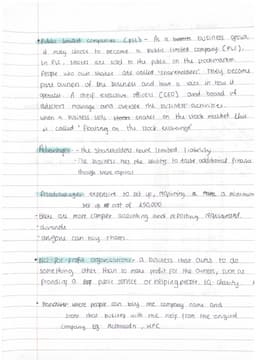 • Public limited companies (plc) - As a business grows
it may decide to become a public limited company (PLC).
In PLC, shares are sold to the public on the stockmarket.
People who own shares are called 'shareholders'. They become
part owners of the business and have a voice in how it
operates. A chief executive officers (CEO) and board of
directors manage and oversee the business activities.
when a business sells shares on the stock market this
is called 'Floating on the stock exchange'
Advantages - the shareholders have limited liability
- The business has the ability to raise additional finance
though share capital
Disadvantages - expensive to set up, requiring a minimum
set up of cost of £50,000
• there are more complex accounting and reporting requirement.
• dividends
• anyone can buy shares.
• Not-for-profit organisations - A business that aims to do
something other than to make profit for the owners, such as
providing a public service or helping people. EG - charity
• Franchise - where people can buy the company name and
start that business with the help from the original
company. Eg McDonalds, KFC